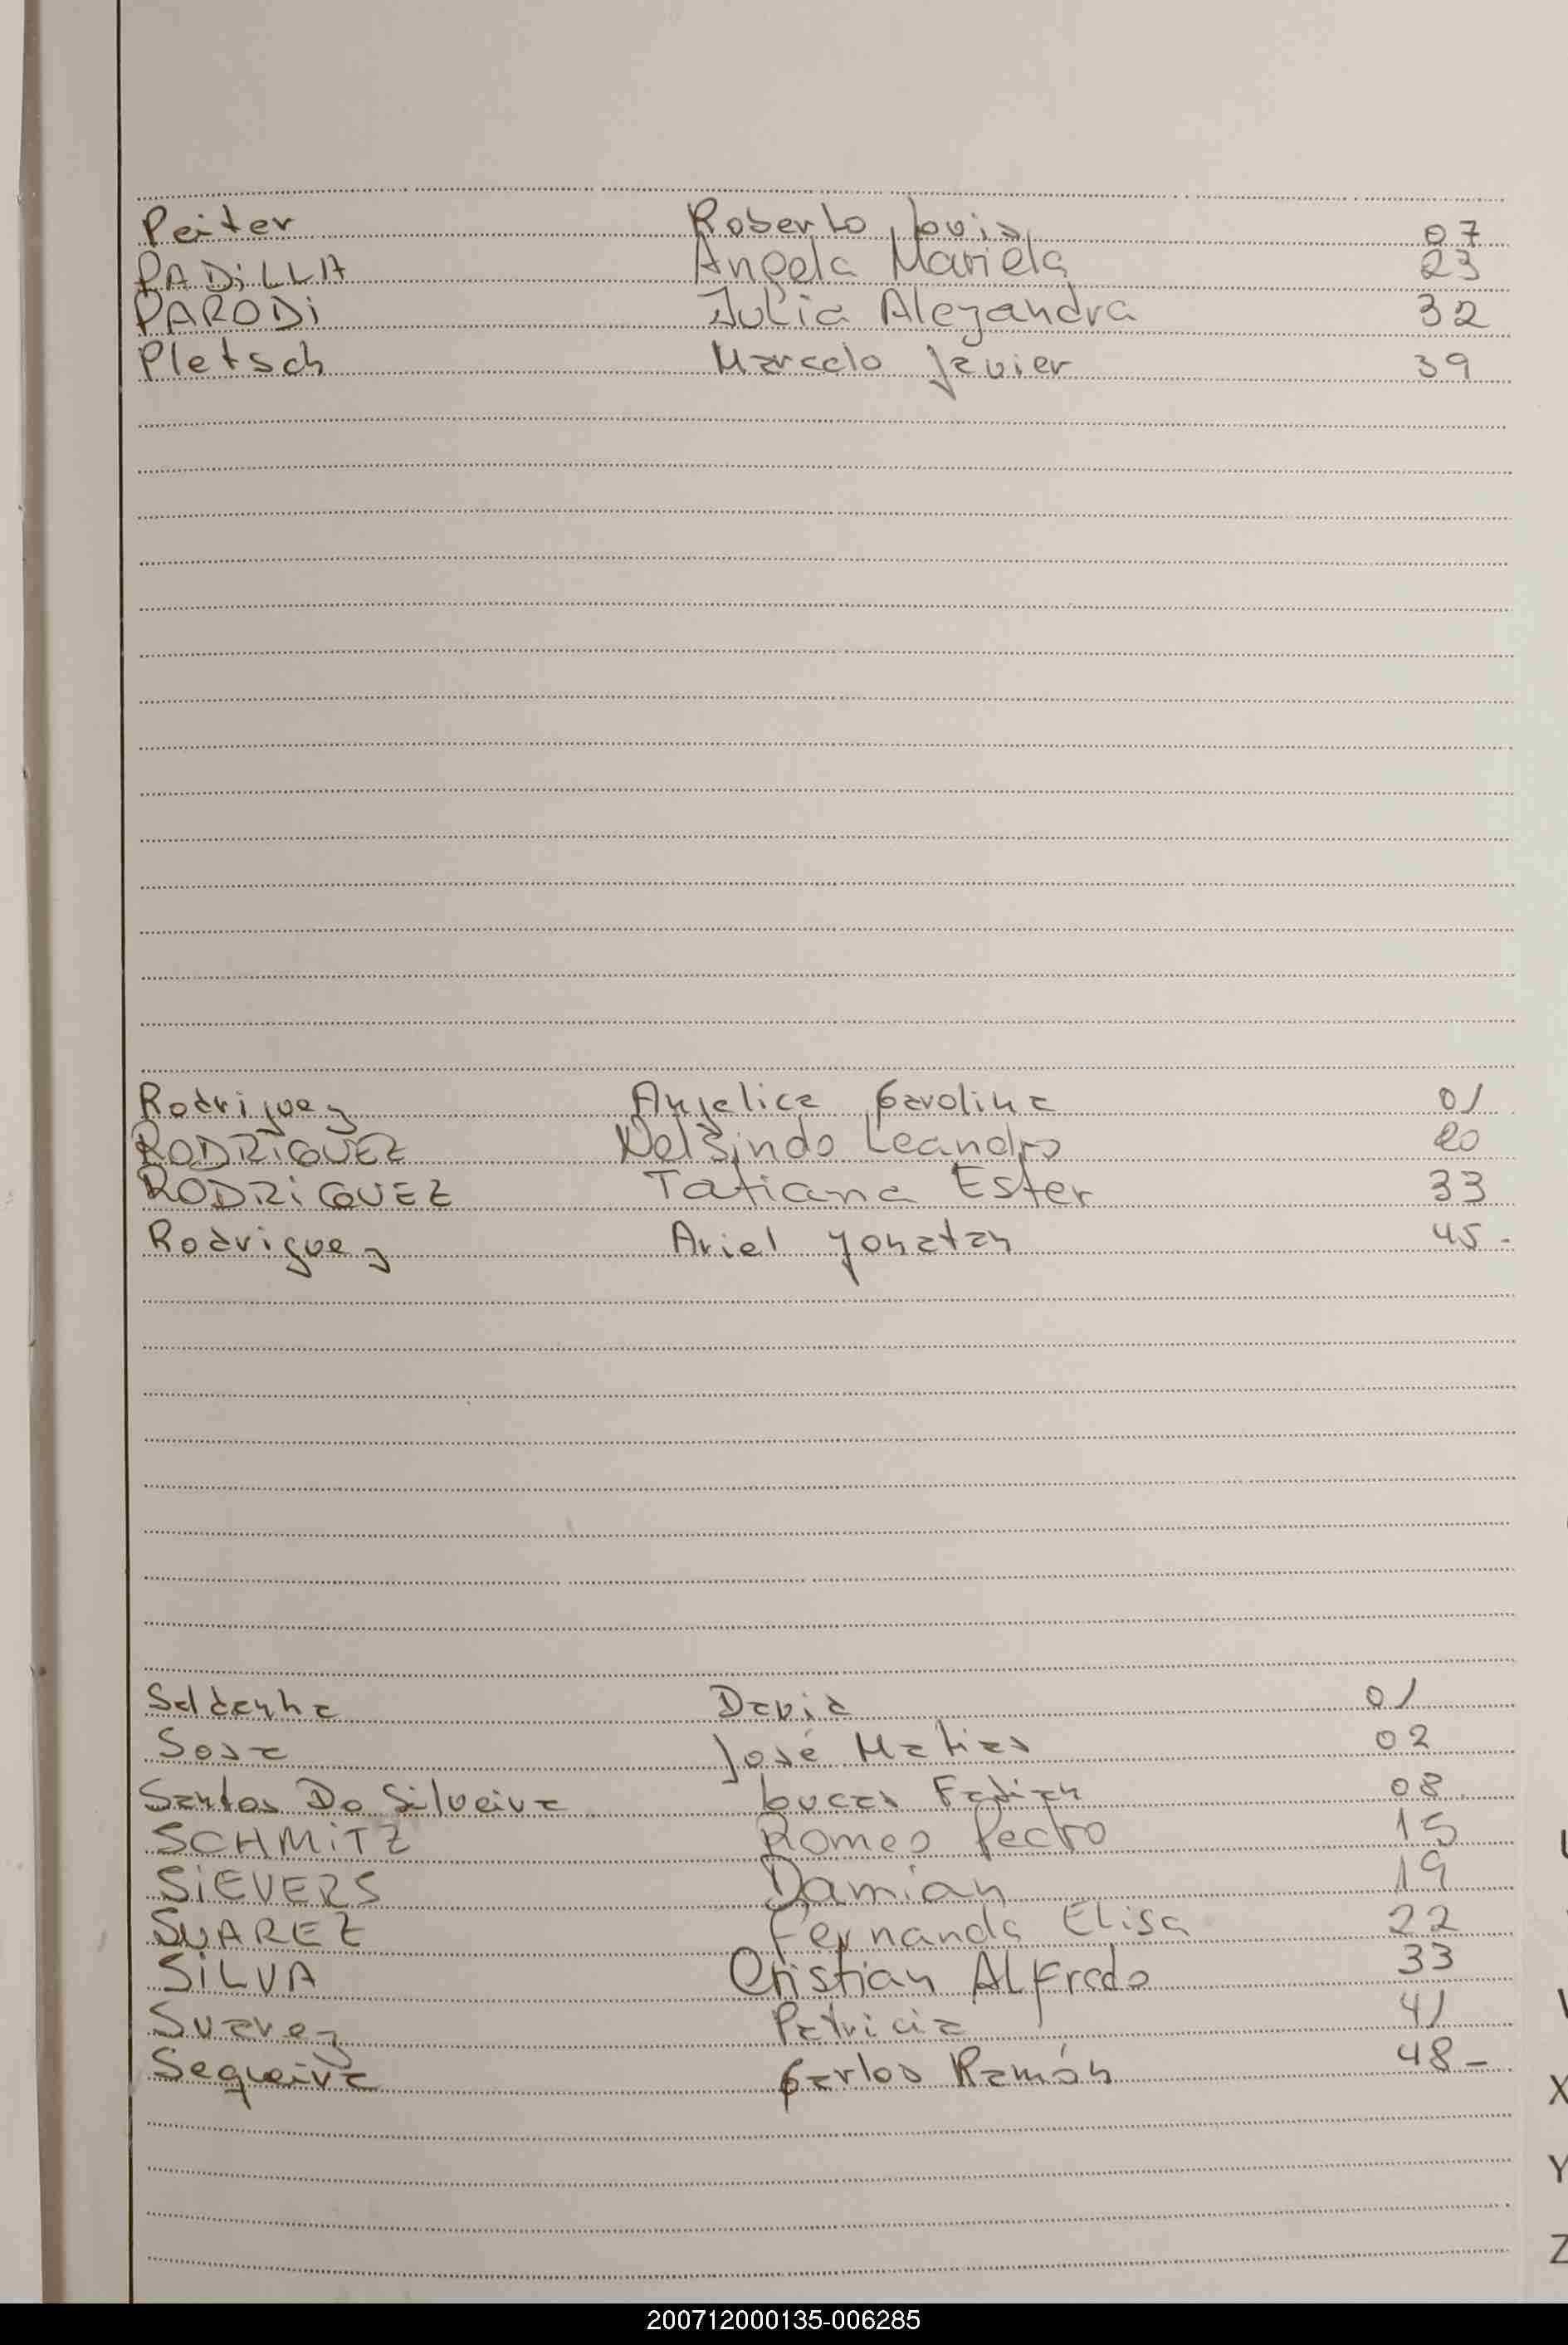 Peiter Roberto Luis 07
PADILLA Angela Mariela 23
PARODI Julia Alejandra 32
Pletsch Marcelo Javier 39
Rodriguez Angelica Carolina 01
RODRIGUEZ Nelsindo Leandro 20
RODRIGUEZ Tatiana Ester 33
Rodriguez Ariel Yonatan 45-
Saldanha David 01
Sosa José Matias 02
Santos Da Silveira Lucas Fabian 08
SCHMITZ Romeo Pedro 15
SIEVERS Damian 19
SUAREZ Fernanda Elisa 22
SILVA Cristian Alfredo 33
Suarez Patricia 41
Sequeira Carlos Ramón 48-
X
Y
Z
200712000135-006285